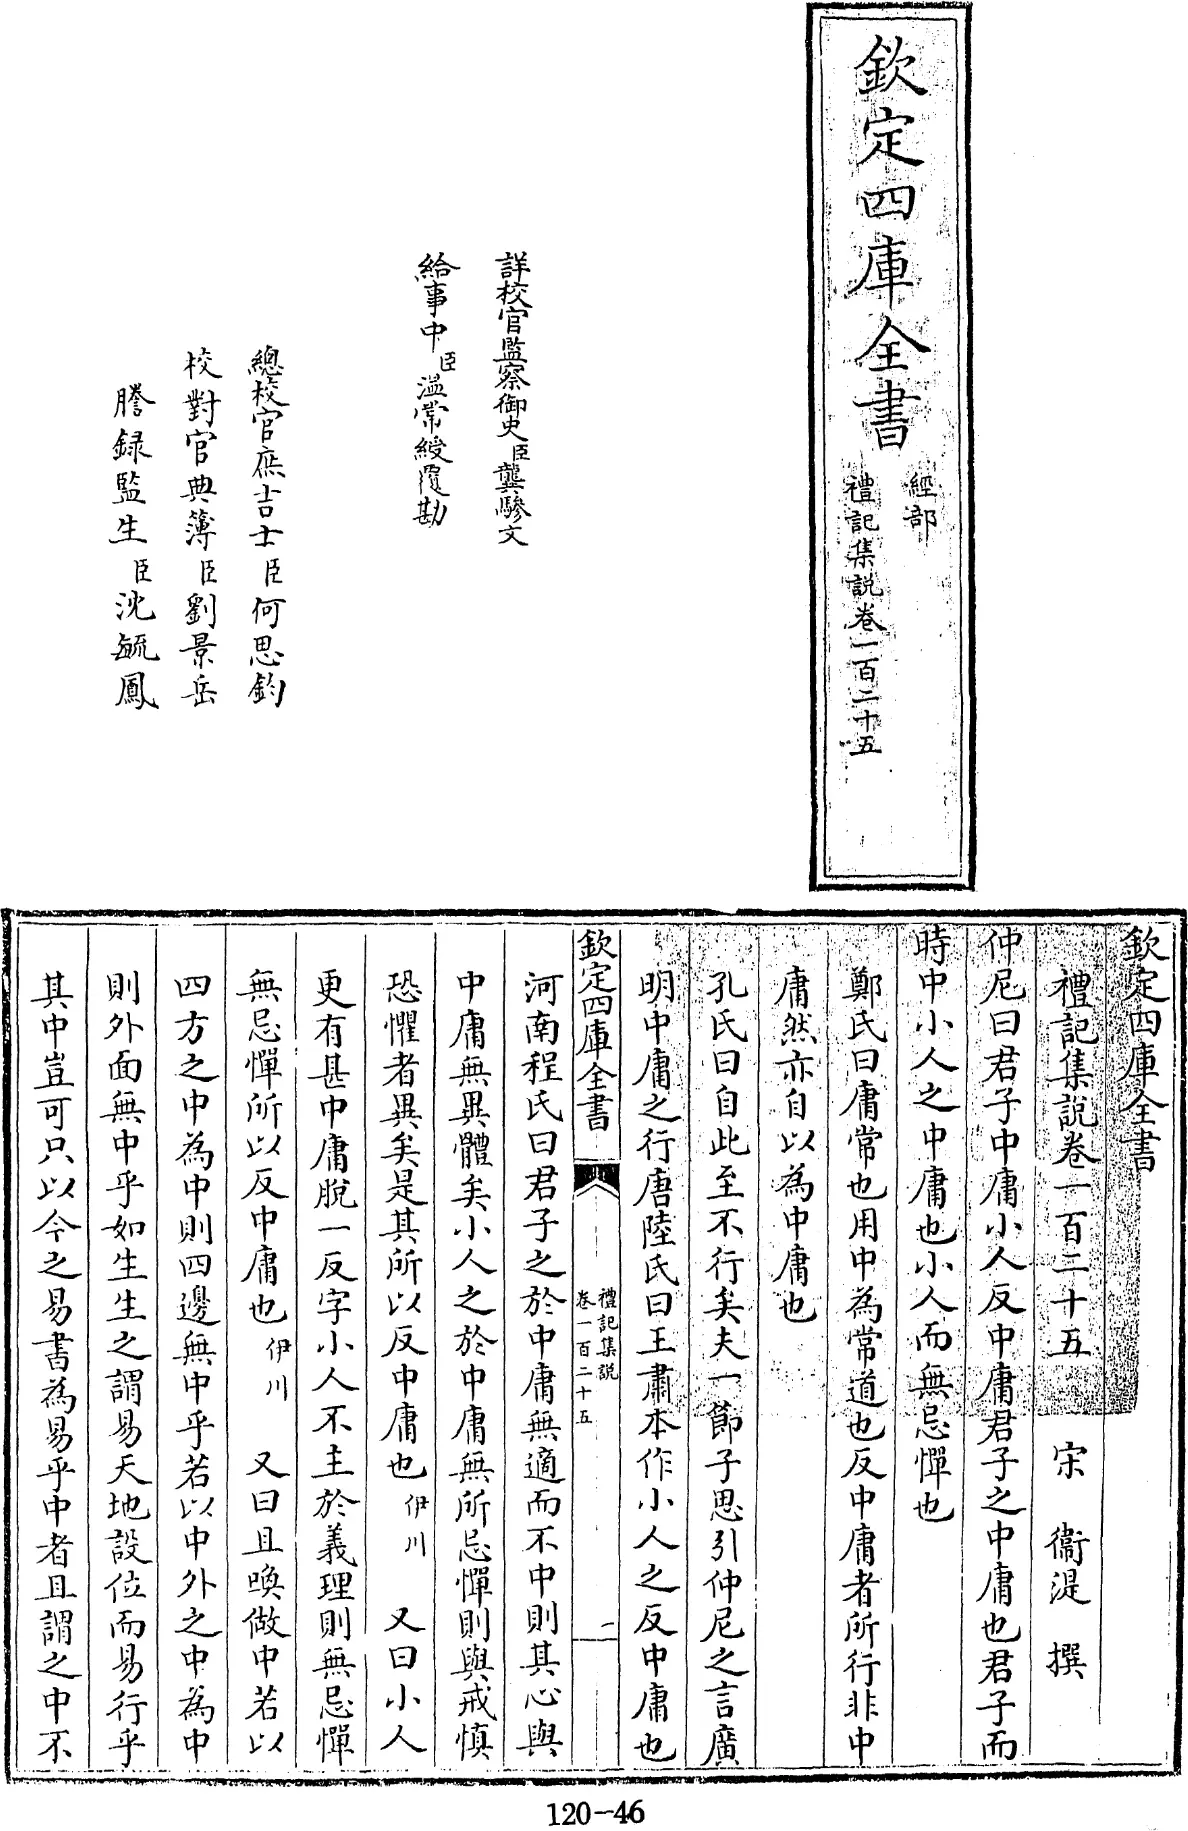 欽定四庫全書
經部
禮記集說卷一百二十五
詳校官監察御史臣龔驂文
給事中臣溫常綬覆勘
總校官庶吉士臣何思鈞
校對官典簿臣劉景岳
謄錄監生臣沈毓鳳
欽定四庫全書
禮記集說卷一百二十五 宋 衞湜 撰
仲尼曰君子中庸小人反中庸君子之中庸也君子而
時中小人之中庸也小人而無忌憚也
鄭氏曰庸常也用中為常道也反中庸者所行非中
庸然亦自以為中庸也
孔氏曰自此至不行矣夫一節子思引仲尼之言廣
明中庸之行唐陸氏曰王肅本作小人之反中庸也
欽定四庫全書
禮記集說
卷一百二十五
一
河南程氏曰君子之於中庸無適而不中則其心與
中庸無異體矣小人之於中庸無所忌憚則與戒慎
恐懼者異矣是其所以反中庸也伊川 又曰小人
更有甚中庸脫一反字小人不主於義理則無忌憚
無忌憚所以反中庸也伊川 又曰且喚做中若以
四方之中為中則四邊無中乎若以中外之中為中
則外面無中乎如生生之謂易天地設位而易行乎
其中豈可只以今之易書為易乎中者且謂之中不
120-46